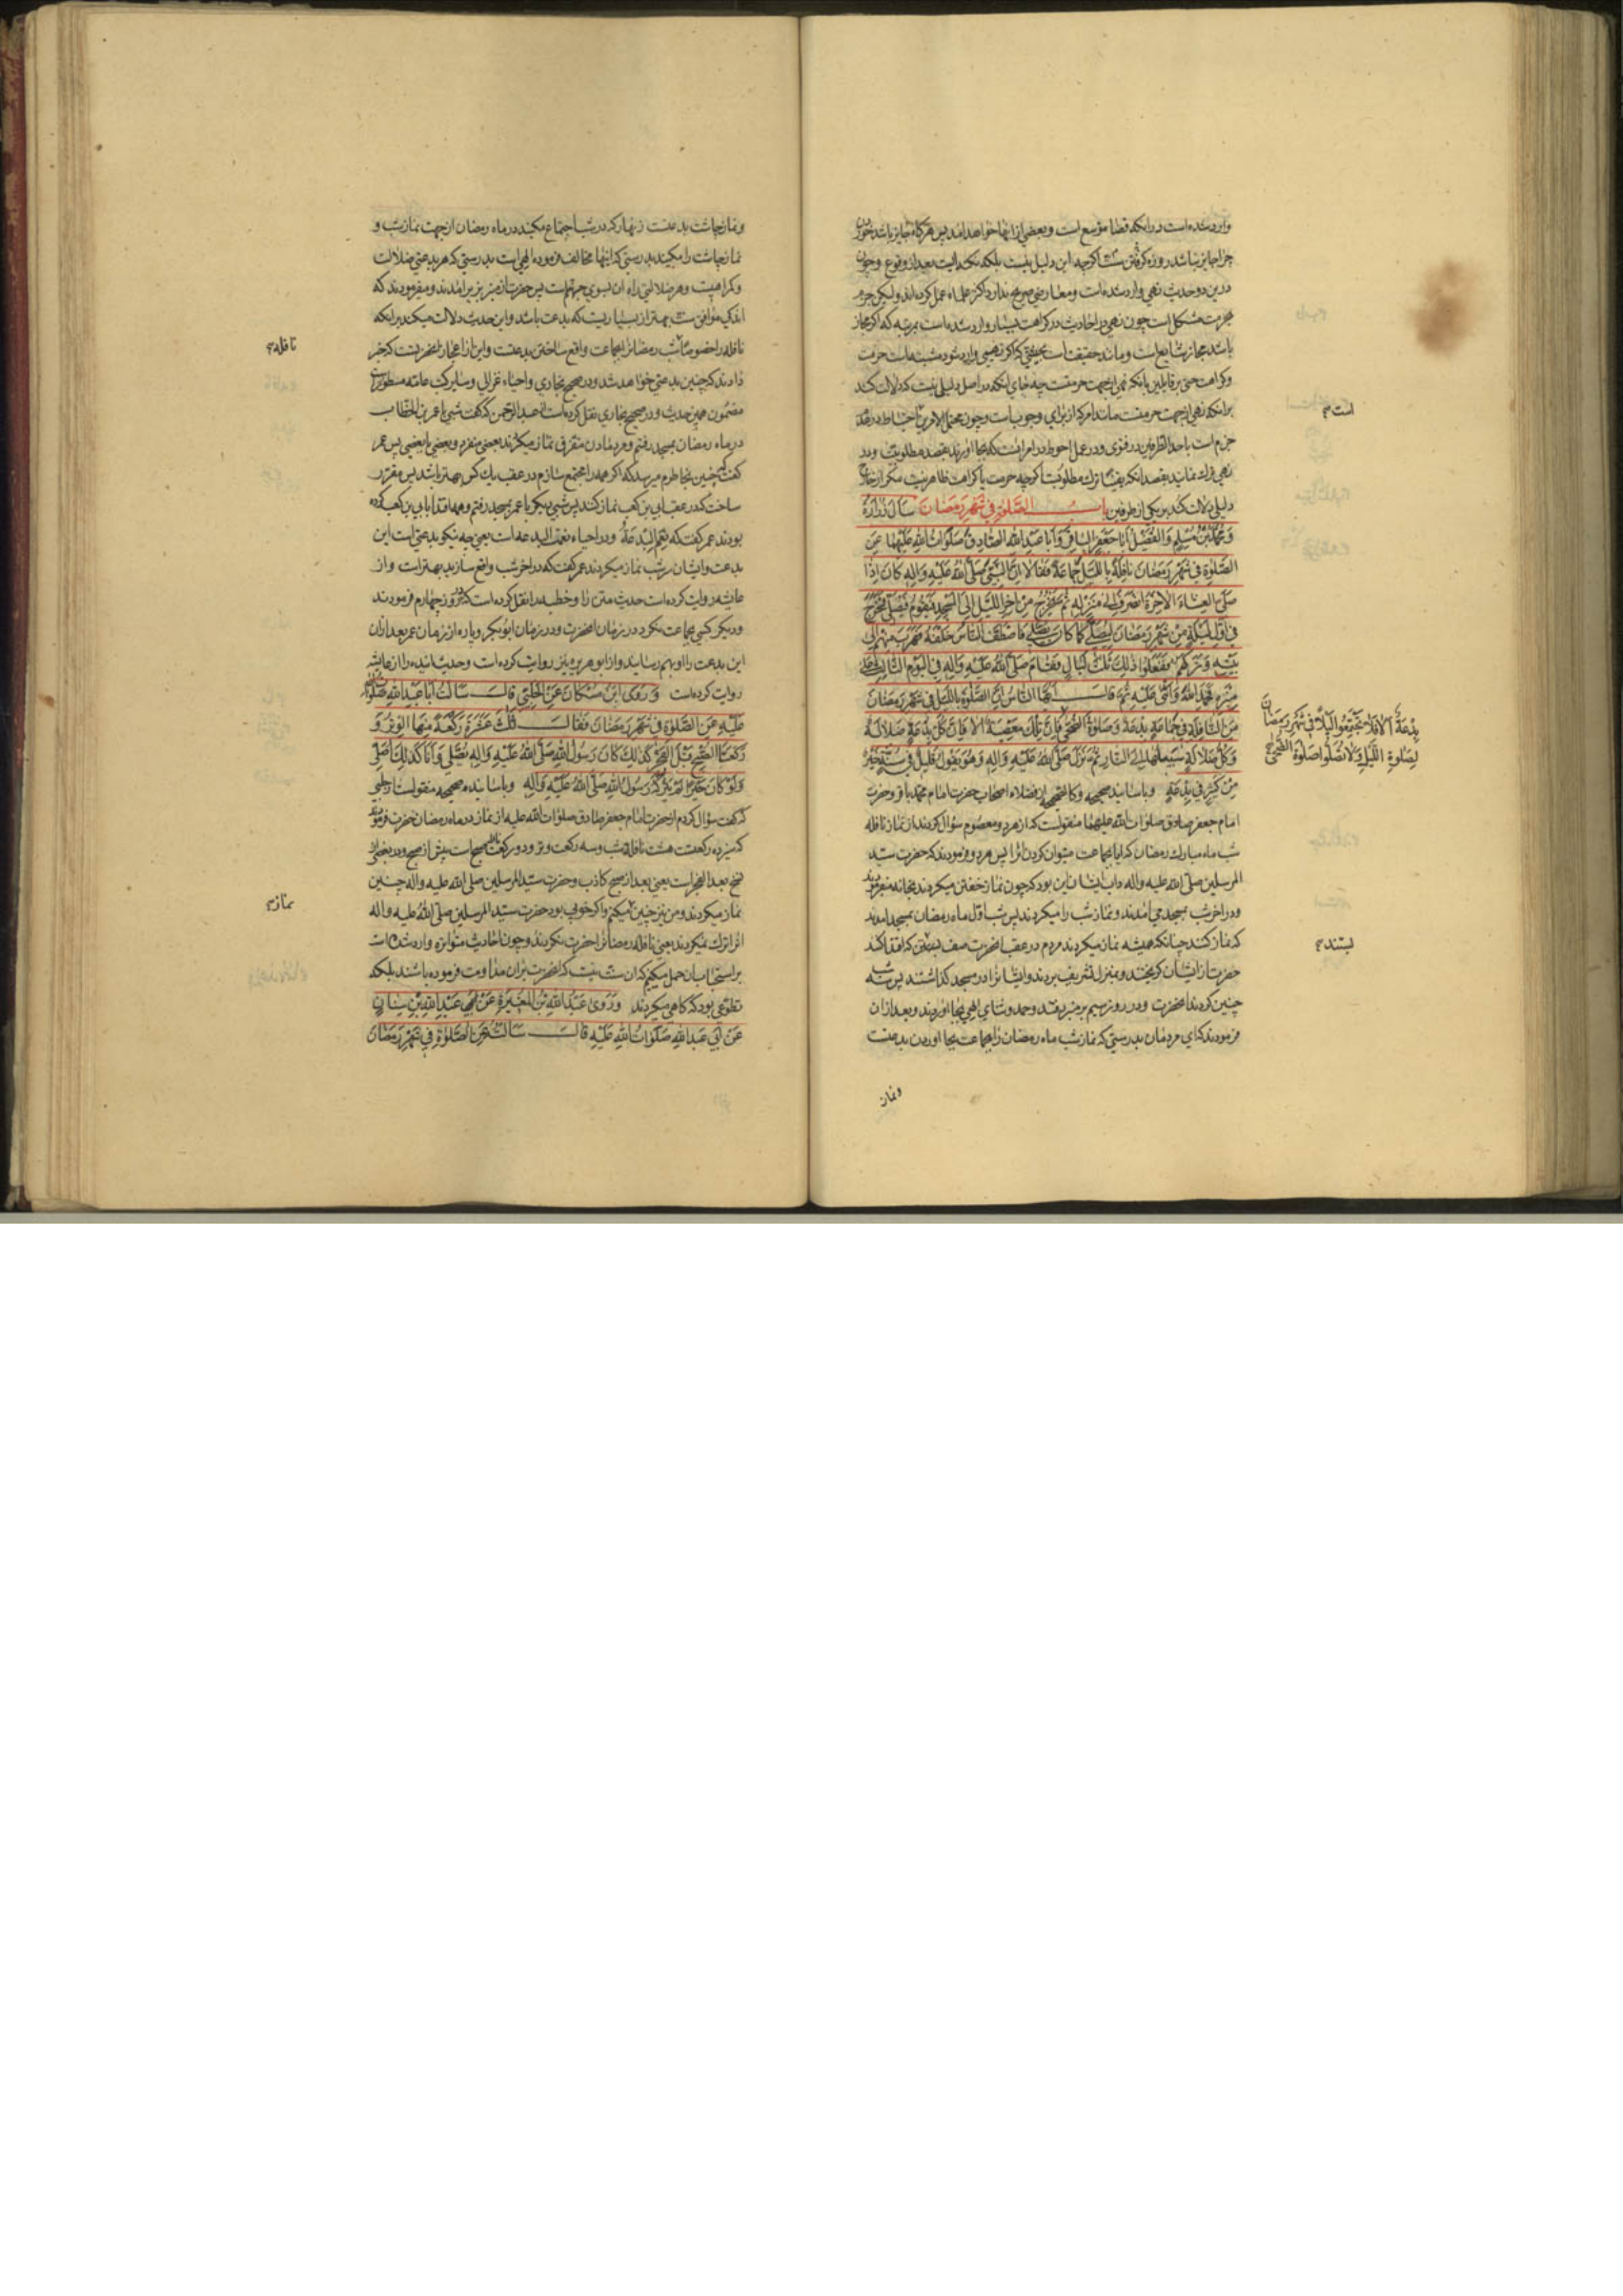 وارد شده است در آنکه قضا موسع است و بعضی از آنها خواهد آمد پس هرگاه جایز باشد
چرا جایز نباشد روزه گرفتن اگرچه این دلیل نیست بلکه نکته ایست بعد از وقوع و چون
درین دو حدیث نهی وارد شده است و معارضی صریح ندارد و اکثر علماء عمل کرده اند ولیکن جزم
بحرمت مشکل است چون نهی در احادیث در کراهت بسیار وارد شده است بمرتبه که اگر مجاز
باشد مجاز شایع است و مانند حقیقت است
و کراهت حتی بر قایلین بآنکه نهی از جهت حرمتست چه جای آنکه در اصل دلیلی نیست که دلالت کند
است
بر آنکه نهی از جهت حرمتست مانند امر که از برای وجوب است و چون محتمل الامرین احتیاط در عدم
جزم است باحد الطرفین در فتوی و در عمل احوط در امر آنست که بجا آورند بقصد مطلوبیت و در
نهی ترک نمایند بقصد آنکه یقینا ترک مطلوبست اگرچه حرمت یا کراهت ظاهر نیست مگر از خارج
دلیلی دلالت کند بر یکی از طرفین باب الصلوة فی شهر رمضان سأل زرارة
و محمد بن مسلم و الفضیل ابا جعفر الباقر و ابا عبد الله الصادق صلوات الله علیهما عن
الصلوة فی شهر رمضان نافلة باللیل جماعة فقالا ان النبی صلی الله علیه و اله کان اذا
صلی العشاء الاخرة انصرف الی منزله ثم یخرج من اخر اللیل الی المسجد فیقوم فیصلی فخرج
فی اول لیلة من شهر رمضان لیصلی کما کان یصلی فاصطف الناس خلفه فهرب منهم الی
بیته و ترکهم ففعلوا ذلک ثلث لیال فقام صلی الله علیه و اله فی الیوم الثالث علی
منبره فحمد الله و اثنی علیه ثم قال ایها الناس ان الصلوة باللیل فی شهر رمضان
من النافلة فی جماعة بدعة و صلوة الضحی فان تلک معصیة الا و ان کل بدعة ضلالة
بدعة الا فلا تجتمعوا لیلا فی شهر رمضان
لصلوة اللیل و لا تصلوا صلوة الضحی
و کل ضلالة سبیلها الی النار ثم نزل صلی الله علیه و اله و هو یقول قلیل فی سنة خیر
من کثیر فی بدعة و باسانید صحیحه و کالصحیحه از فضلاء اصحاب حضرت امام محمد باقر و حضرت
امام جعفر صادق صلوات الله علیهما منقولست که از هر دو معصوم سؤال کردند از نماز نافله
شب ماه مبارک رمضان که ایا بجماعت میتوان کردن انرا پس هر دو فرمودند که حضرت سید
المرسلین صلی الله علیه و اله داب ایشان این بود که چون نماز خفتن میکردند بخانه میفرمودند
و در اخر شب بمسجد می آمدند و نماز شب را میکردند پس شب اول ماه رمضان بمسجد آمدند
بستند
که نماز کنند چنانکه همیشه نماز میکردند مردم در عقب آنحضرت صف بستند که اقتدا کنند
حضرت از ایشان گریختند و بمنزل تشریف بردند و ایشان را در مسجد گذاشتند پس سه شب
چنین کردند آنحضرت در روز سیم بر منبر رفتند و حمد و ثنای الهی بجا آوردند و بعد از آن
فرمودند که ای مردمان بدرستی که نماز شب ماه رمضان را بجماعت بجا آوردن بدعتست
و نماز
و نماز چاشت بدعتست زنهار که در شبها اجتماع مکنید در ماه رمضان از جهت نماز شب و
نماز چاشت را مکنید بدرستی که اینها مخالف فرموده الهی است بدرستی که هر بدعتی ضلالت
و گمراهیست و هر ضلالتی راه آن بسوی جهنم است پس حضرت از منبر بزیر آمدند و میفرمودند که
اندکی موافق سنت بهتر از بسیاریست که بدعت باشد و این حدیث دلالت میکند بر آنکه
نافله
نافله را خصوصا شب رمضان را بجماعت واقع ساختن بدعتست و این از اعجاز آنحضرتست که خبر
دادند که چنین بدعتی خواهد شد و در صحیح بخاری و احیاء غزالی و سایر کتب عامه مسطور است
مضمون همین حدیث و در صحیح بخاری نقل کرده است از عبد الرحمن که گفت شبی با عمر بن الخطاب
در ماه رمضان بمسجد رفتم و مردمان متفرق نماز میکردند بعضی منفرد و بعضی با بعضی پس عمر
گفت چنین بخاطرم میرسد که اگر همه را مجتمع سازم در عقب یک کس بهتر باشد پس مقرر
ساخت که در عقب ابی بن کعب نماز کنند پس شبی دیگر با عمر بمسجد رفتم و همه اقتدا بابی بن کعب کرده
بودند عمر گفت که نعم البدعة و در احیاء نعمت البدعة است یعنی چه نیکو بدعتی است این
بدعت و ایشان سر شب نماز میکردند عمر گفت که در اخر شب واقع سازید بهتر است و از
عایشه روایت کرده است حدیث متن را و خطبه را نقل کرده است که در روز چهارم فرمودند
و دیگر کسی بجماعت نکرد در زمان آنحضرت و در زمان ابو بکر و پاره از زمان عمر بعد از آن
این بدعت را او بهم رسانید و از ابو هریره نیز روایت کرده است و حدیث اینده را از عایشه
روایت کرده است و روی ابن مسکان عن الحلبی قال سالت ابا عبد الله صلوات الله
علیه عن الصلوة فی شهر رمضان فقال ثلث عشرة رکعة منها الوتر و
رکعتا الصبح قبل الفجر کذلک کان رسول الله صلی الله علیه و اله یصلی و انا کذلک اصلی
و لو کان خیرا لم یترکه رسول الله صلی الله علیه و اله و باسانید صحیحه منقولست از حلبی
که گفت سؤال کردم از حضرت امام جعفر صادق صلوات الله علیه از نماز در ماه رمضان حضرت فرمودند
که سیزده رکعتست هشت نافله شب و سه رکعت وتر و دو رکعت نافله صبح است پیش از صبح و در بعضی از
نسخ بعد الفجر است یعنی بعد از صبح کاذب و حضرت سید المرسلین صلی الله علیه و اله چنین
نماز
نماز میکردند و من نیز چنین میکنم و اگر خوب بود حضرت سید المرسلین صلی الله علیه و اله
آنرا ترک نمیکردند یعنی نافله رمضان را حضرت نکردند و چون احادیث متواتره وارد شده است
بر استحباب آن حمل میکنیم که آن سنت نیست که آنحضرت بر آن مداومت فرموده باشند بلکه
تطوعی بود که گاهی میکردند و روی عبد الله بن المغیرة عن عبد الله بن سنان
عن ابی عبد الله صلوات الله علیه قال سالته عن الصلوة فی شهر رمضان